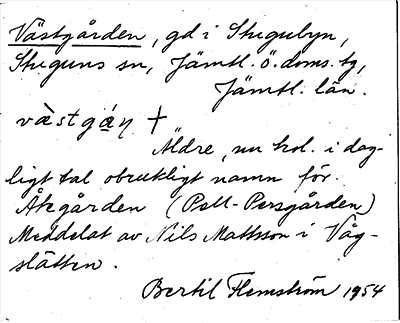 Västgården, gd i Stugubyn,
Stuguns sn, Jämtl. ö. doms. tg,
Jämtl. län.
vàstgáṇ †
Äldre, nu hol. i dag-
ligt tal obrukligt namn för
Åkgården (Pell-Persgården)
Meddelat av Nils Mattsson i Våg-
slätten.
Bertil Flemström 1954